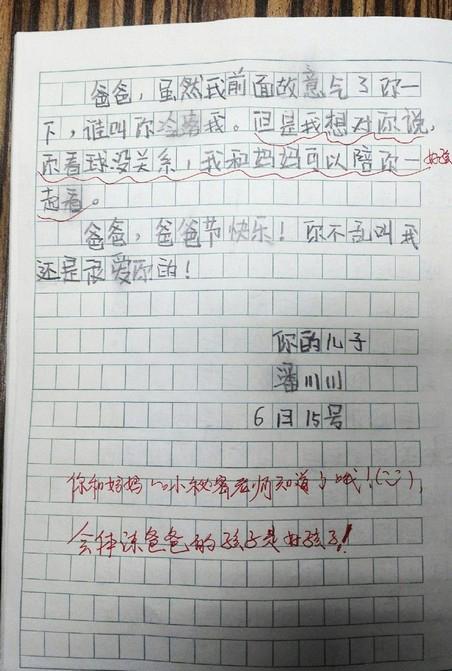 爸爸，虽然我前面故意气了你一
下，谁叫你冷落我。但是我想对你说，
你看球没关系，我和妈妈可以陪你一
起看。
爸爸，爸爸节快乐！你不乱叫我
还是很爱你的！
你的儿子
潘川川
6月15号
你和妈妈的小秘密老师知道了哦！
会体谅爸爸的孩子是好孩子！